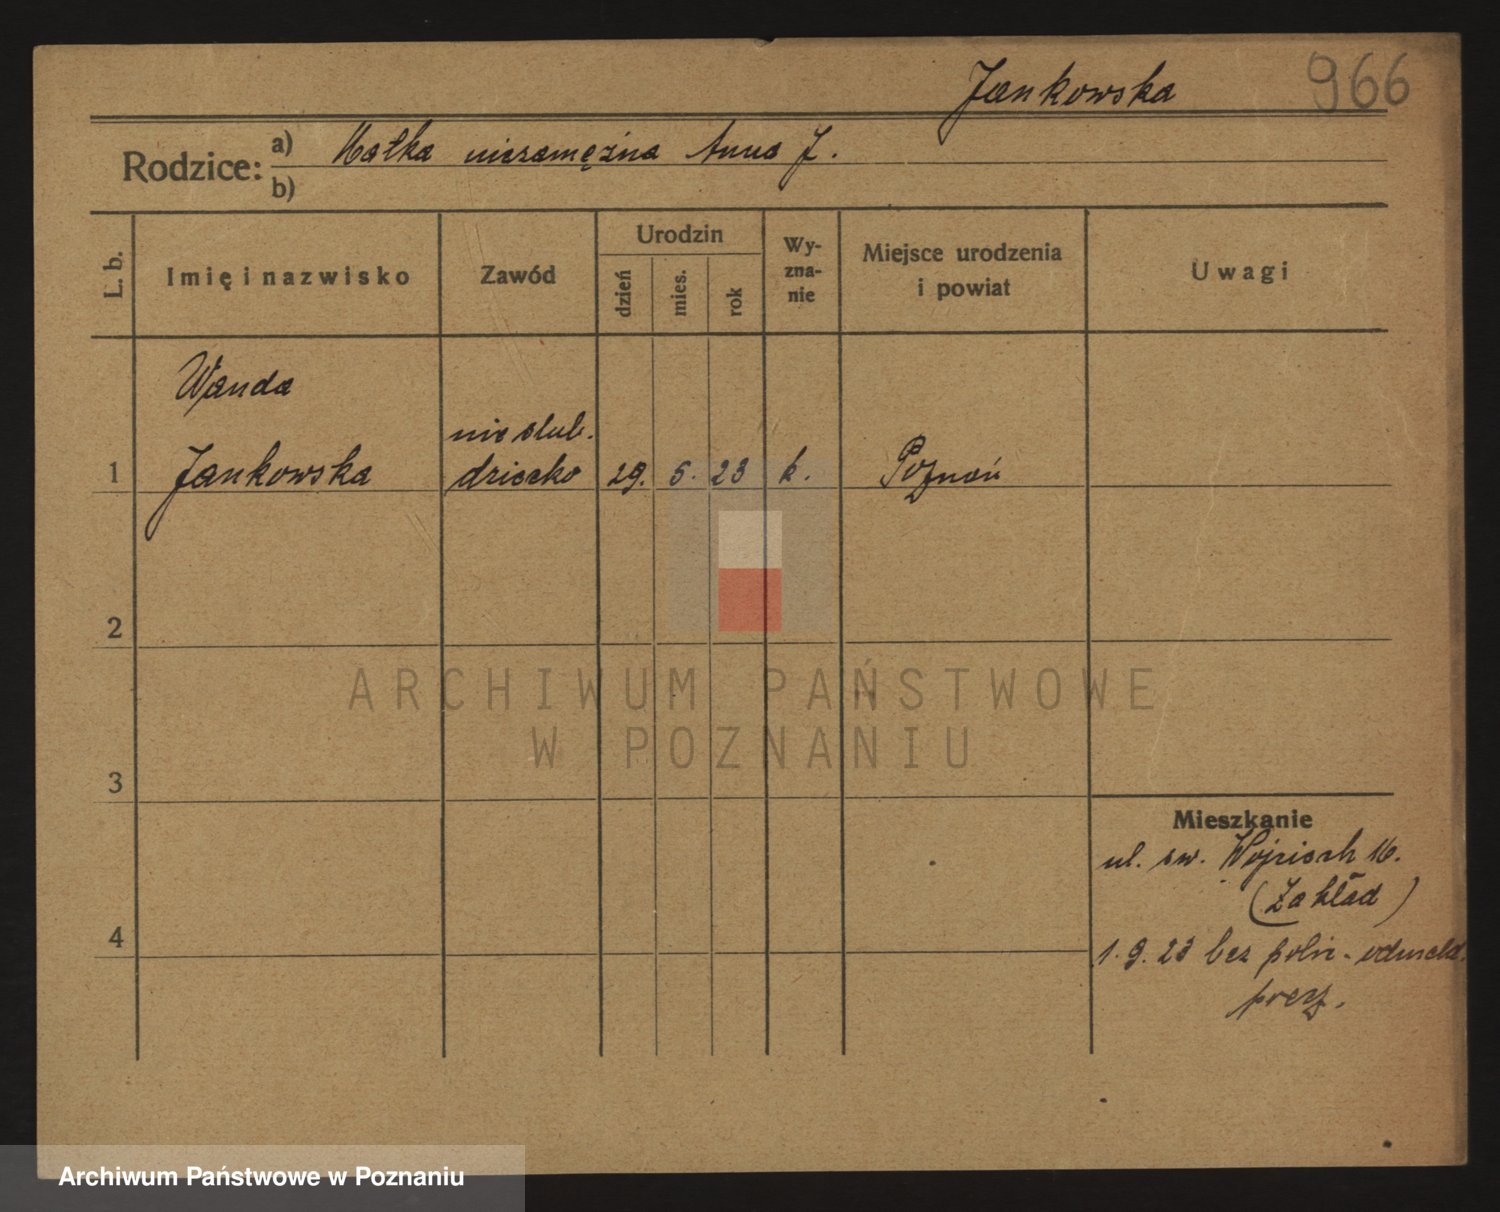 Jankowska 966
Rodzice: a) Matka niezamężna Anna J.
b)
L. b. Imię i nazwisko Zawód Urodzin dzień mies. rok Wy-zna-nie Miejsce urodzenia i powiat Uwagi
Wanda
nieślub.
1 Jankowska dziecko 29. 5. 23 k. Poznań
2
ARCHIWUM PAŃSTWOWE
W POZNANIU
3
Mieszkanie
ul. św. Wojciech 16.
(Zakład)
4
1. 9. 23 bez polic. odmeld.
Archiwum Państwowe w Poznaniu